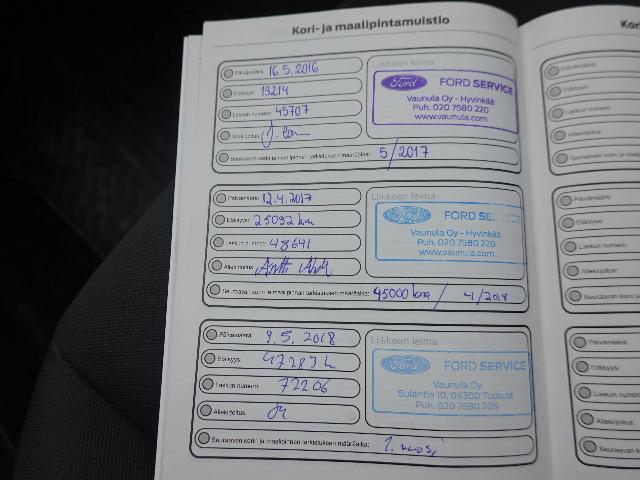 Kori- ja maalipintamuistio
Päivämäärä: 16.5.2016
Etäisyys: 13214
Laskun numero: 45707
Allekirjoitus:
Seuraavan korin ja maalipinnan tarkistuksen määräaika: 5/2017
Liikkeen leima
Ford FORD SERVICE
Vaunula Oy - Hyvinkää
Puh. 020 7580 220
www.vaunula.com
Päivämäärä: 12.4.2017
Etäisyys: 25092 km
Laskun numero: 48641
Allekirjoitus: Antti
Seuraavan korin ja maalipinnan tarkistuksen määräaika: 45000 km / 4/2018
Liikkeen leima
Ford FORD SERVICE
Vaunula Oy - Hyvinkää
Puh. 020 7580 220
www.vaunula.com
Päivämäärä: 9.5.2018
Etäisyys: 47283
Laskun numero: 72206
Allekirjoitus:
Seuraavan korin ja maalipinnan tarkistuksen määräaika:
Liikkeen leima
Ford FORD SERVICE
Vaunula Oy
Sulantie 10, 04300 Tuusula
Puh. 020 7580 205
Kori-
Päivämäärä:
Etäisyys:
Laskun numero:
Allekirjoitus:
Seuraavan korin ja maalipinnan
Päivämäärä:
Etäisyys:
Laskun numero:
Allekirjoitus:
Seuraavan korin ja
Päivämäärä:
Etäisyys:
Laskun numero:
Allekirjoitus:
Seuraavan korin